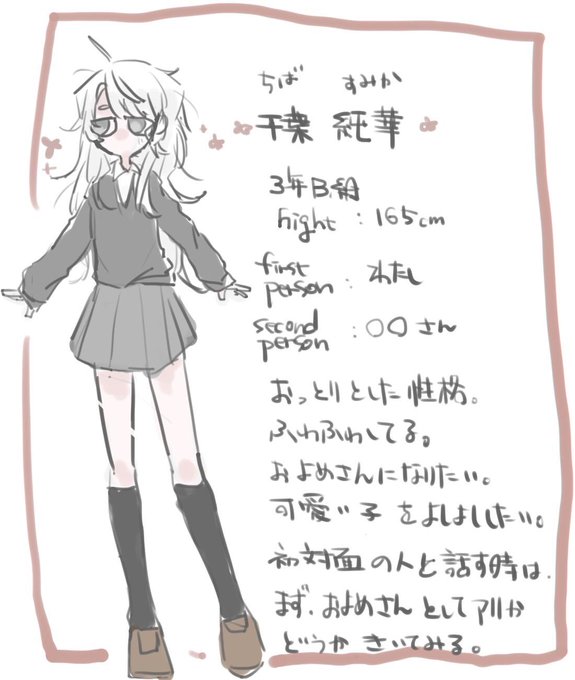 ちば すみか
千葉 純華
3年B組
hight : 165cm
first person : わたし
second person : ○○さん
おっとりとした性格。
ふわふわしてる。
およめさんになりたい。
可愛い子をよしよししたい。
初対面の人と話す時は、
まず、およめさんとしてアリか
どうかきいてみる。